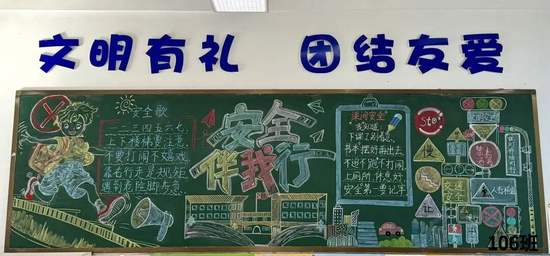 文明有礼 团结友爱
安全歌
一二三四五六七
上下楼梯要注意
不要打闹不嬉戏
靠右行走是规矩
遇到危险即与急
安全
伴我行
课间安全
我知道
下课了别着急
书本摆好再出去
不追不跑不打闹
上厕所，休息好
安全第一要记牢
Stop
慢
让
106班